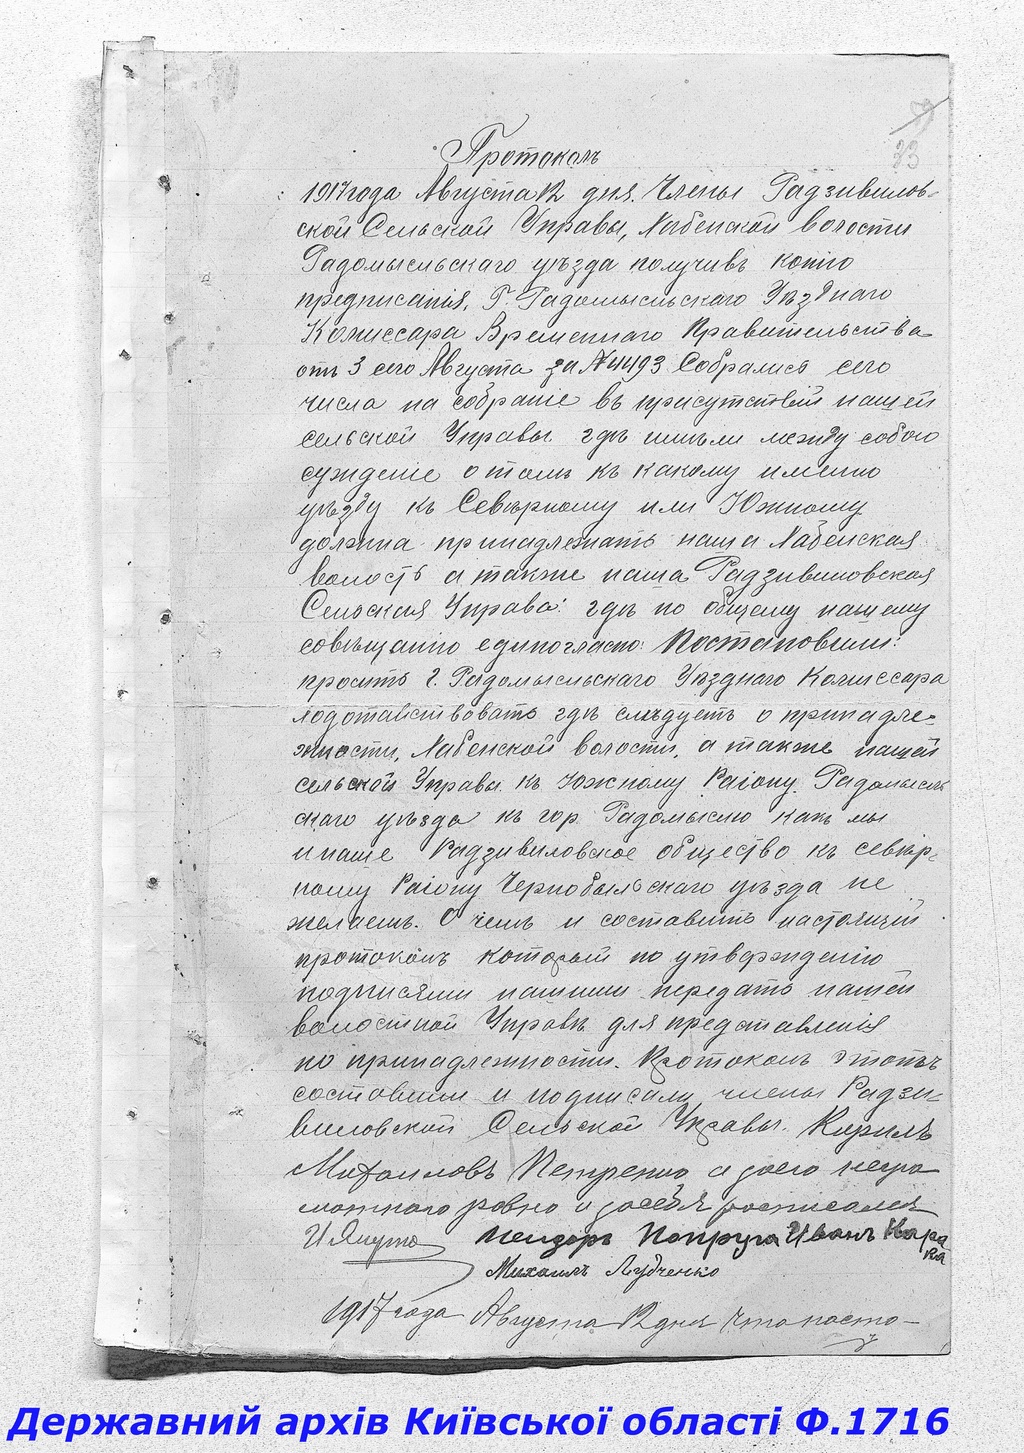 23
Протоколъ
1917 года Августа 12 дня. Члены Радзивилов-
ской Сельской Управы, Хабенской волости
Радомысльскаго уѣзда получивъ копію
предписанія, Г. Радомысльскаго Уѣзднаго
Комиссара Временнаго Правительства
отъ 3 сего Августа за № 4493 Собрались сего
числа на собраніе въ присутствіи нашей
сельской Управы гдѣ имѣли между собою
сужденіе о томъ къ какому именно
уѣзду къ Сѣверному или Южному
должна принадлежать наша Хабенская
волость а также наша Радзивиловская
Сельская Управа: гдѣ по общему нашему
совѣщанію единогласно: Постановили:
просить г. Радомысльскаго Уѣзднаго Комиссара
ходотайствовать гдѣ слѣдуетъ о принадле-
жности, Хабенской волости, а также нашей
сельской Управы къ Южному Раіону Радомысль
скаго уѣзда къ гор. Радомыслю какъ мы
и наше Радзивиловское общество къ севѣр-
ному Раіону Чернобыльскаго уѣзда не
желаемъ. О чемъ и составить настоящій
протоколъ который по утвержденію
подписями нашими передать нашей
волостной Управѣ для представленія
по принадлежности. Протоколъ этотъ
составили и подписали члены Радзи-
виловской Сельской Управы. Кирилъ
Михаиловъ Петренко а за его негра
мотнаго ровно и за себя росписался
И Япута Исидоръ Попруга Иванъ Кара
ка
Михаилъ Лудченко
1917 года Августа 12 дня Что насто-
Державний архів Київської області Ф.1716